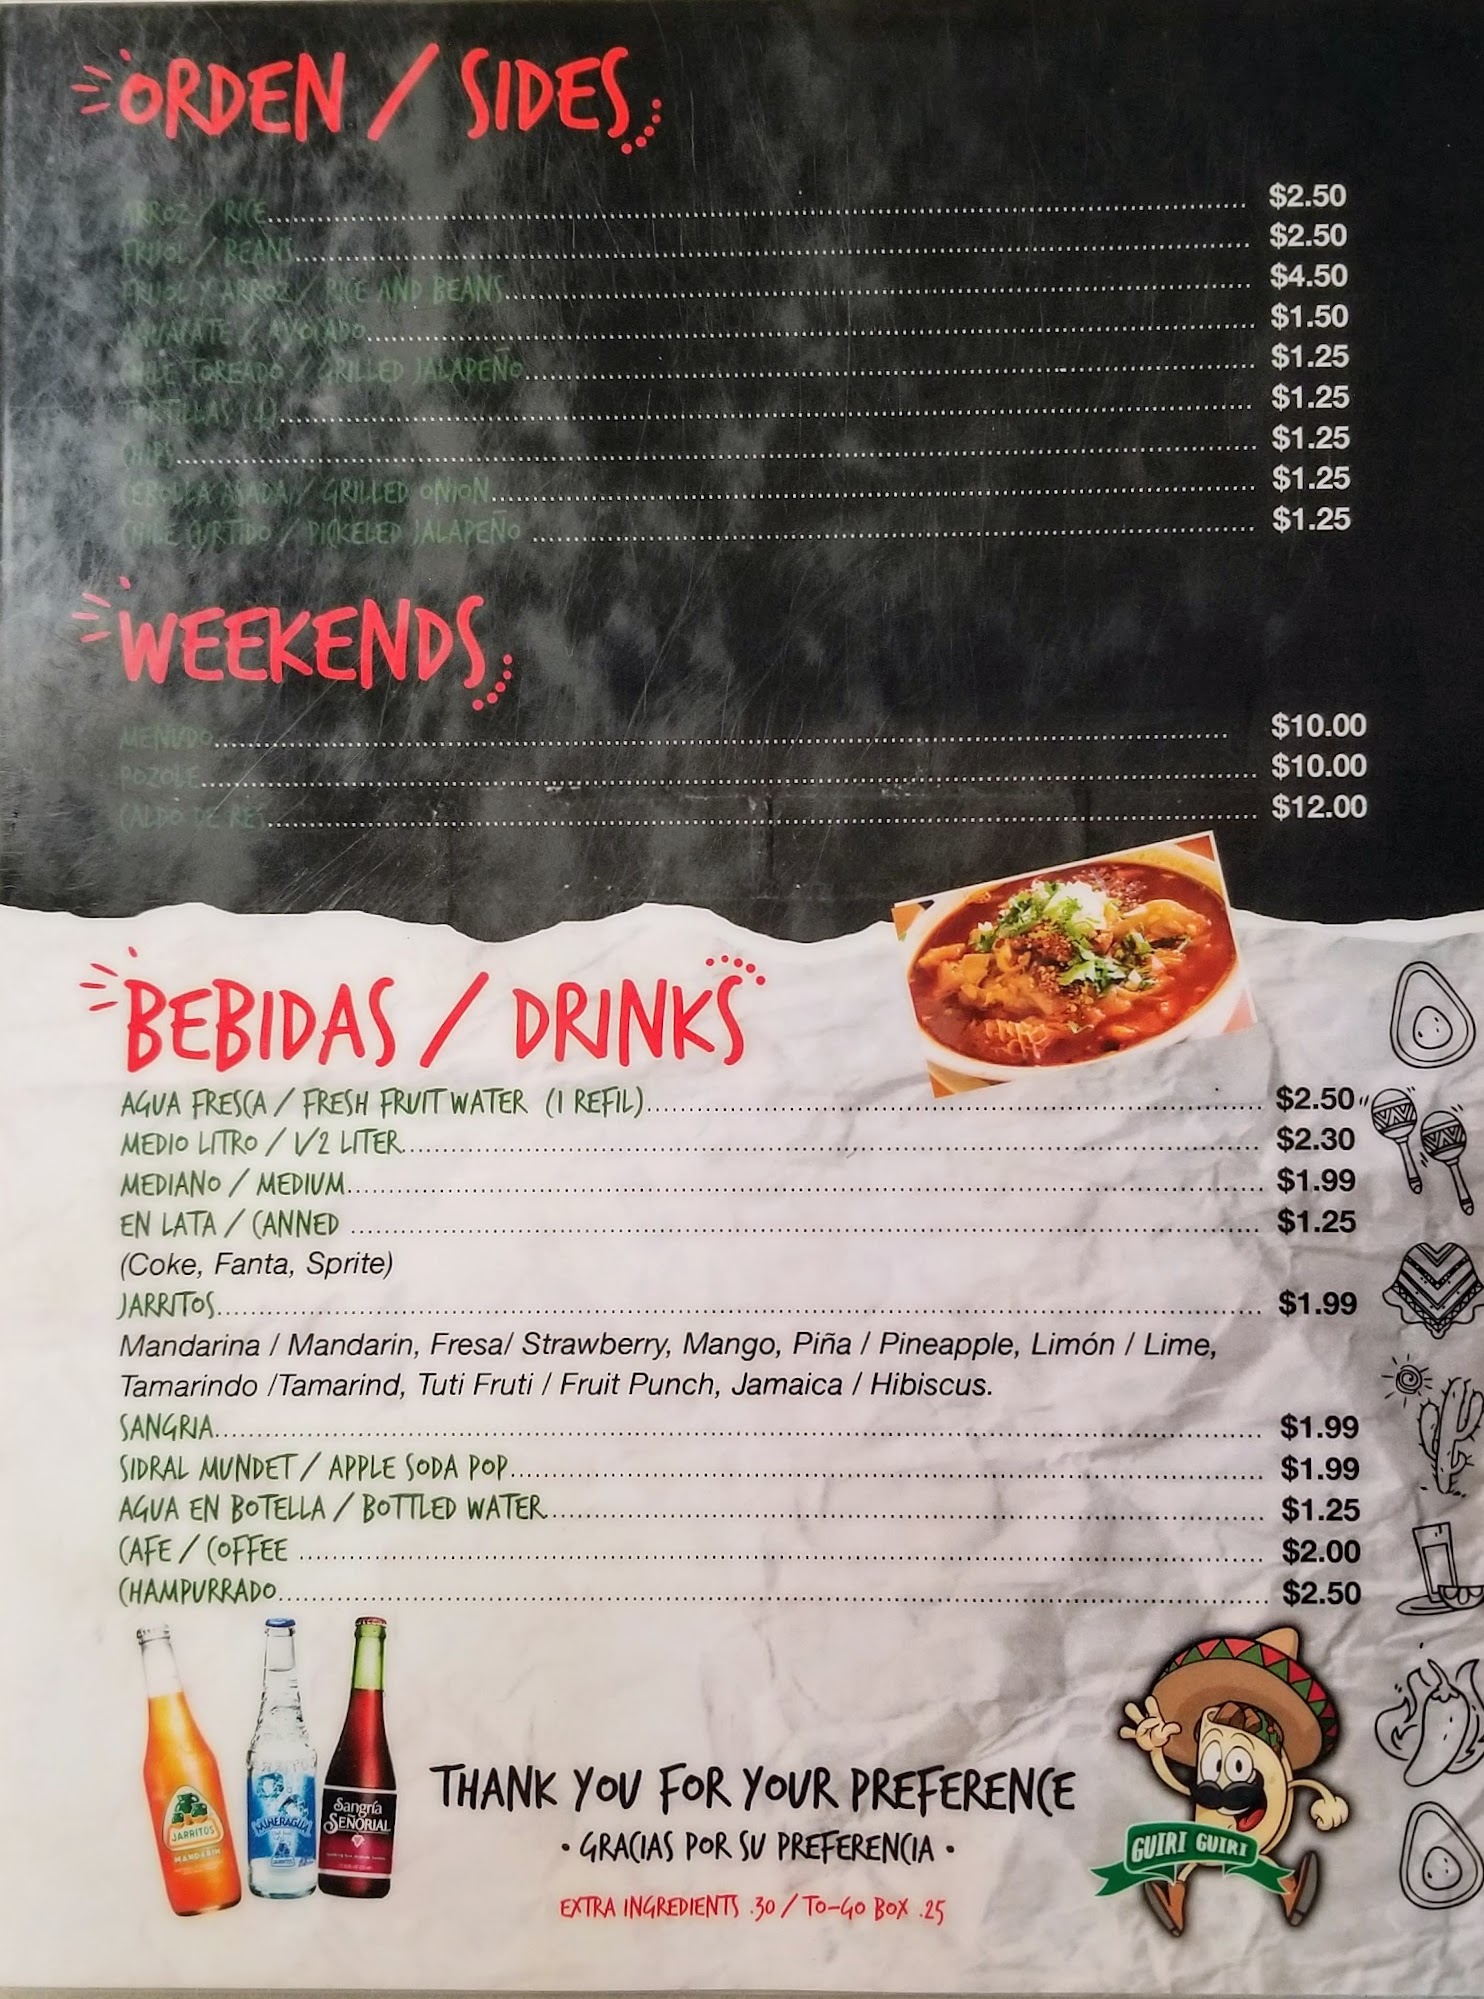 ORDEN / SIDES
ARROZ / RICE $2.50
FRIJOL / BEANS $2.50
FRIJOL Y ARROZ / RICE AND BEANS $4.50
AGUACATE / AVOCADO $1.50
CHILE TOREADO / GRILLED JALAPEÑO $1.25
TORTILLAS (4) $1.25
CHIPS $1.25
CEBOLLA ASADA / GRILLED ONION $1.25
CHILE CURTIDO / PICKELED JALAPEÑO $1.25
WEEKENDS
MENUDO $10.00
POZOLE $10.00
CALDO DE RES $12.00
BEBIDAS / DRINKS
AGUA FRESCA / FRESH FRUIT WATER (1 REFIL) $2.50
MEDIO LITRO / 1/2 LITER $2.30
MEDIANO / MEDIUM $1.99
EN LATA / CANNED $1.25
(Coke, Fanta, Sprite)
JARRITOS $1.99
Mandarina / Mandarin, Fresa/ Strawberry, Mango, Piña / Pineapple, Limón / Lime,
Tamarindo /Tamarind, Tuti Fruti / Fruit Punch, Jamaica / Hibiscus.
SANGRIA $1.99
SIDRAL MUNDET / APPLE SODA POP $1.99
AGUA EN BOTELLA / BOTTLED WATER $1.25
CAFE / COFFEE $2.00
CHAMPURRADO $2.50
JARRITOS
MANDARIN
MINERAGUA
JARRITOS
Sangría
SEÑORIAL
THANK YOU FOR YOUR PREFERENCE
• GRACIAS POR SU PREFERENCIA •
EXTRA INGREDIENTS .30 / TO-GO BOX .25
GUIRI GUIRI